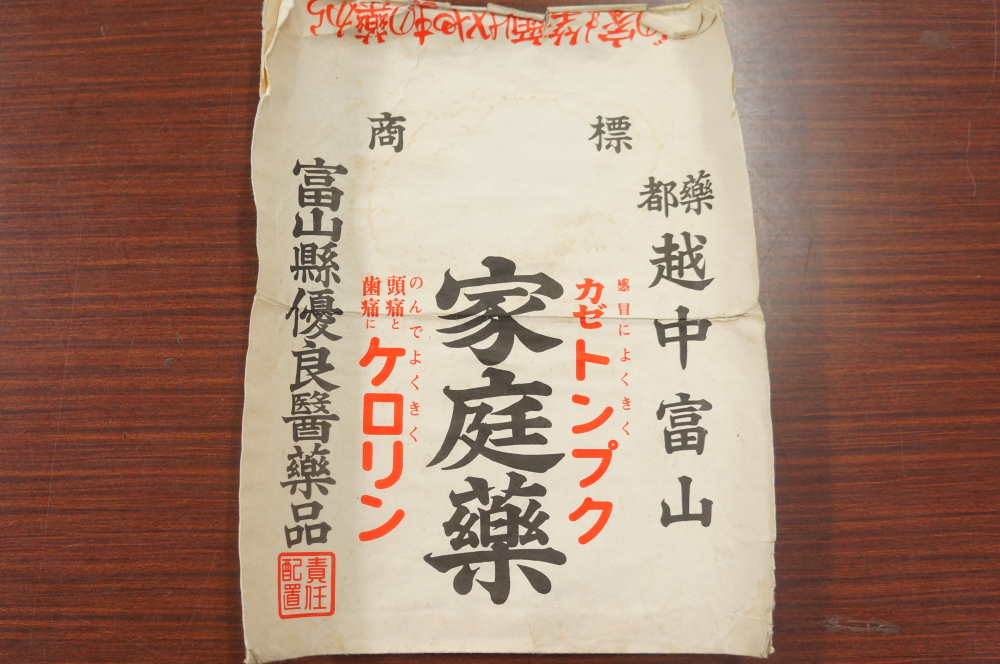 商標
藥都 越中富山
感冒によくきく
カゼトンプク
家庭藥
のんでよくきく
頭痛と
歯痛に
ケロリン
富山縣優良醫藥品
責任
配置